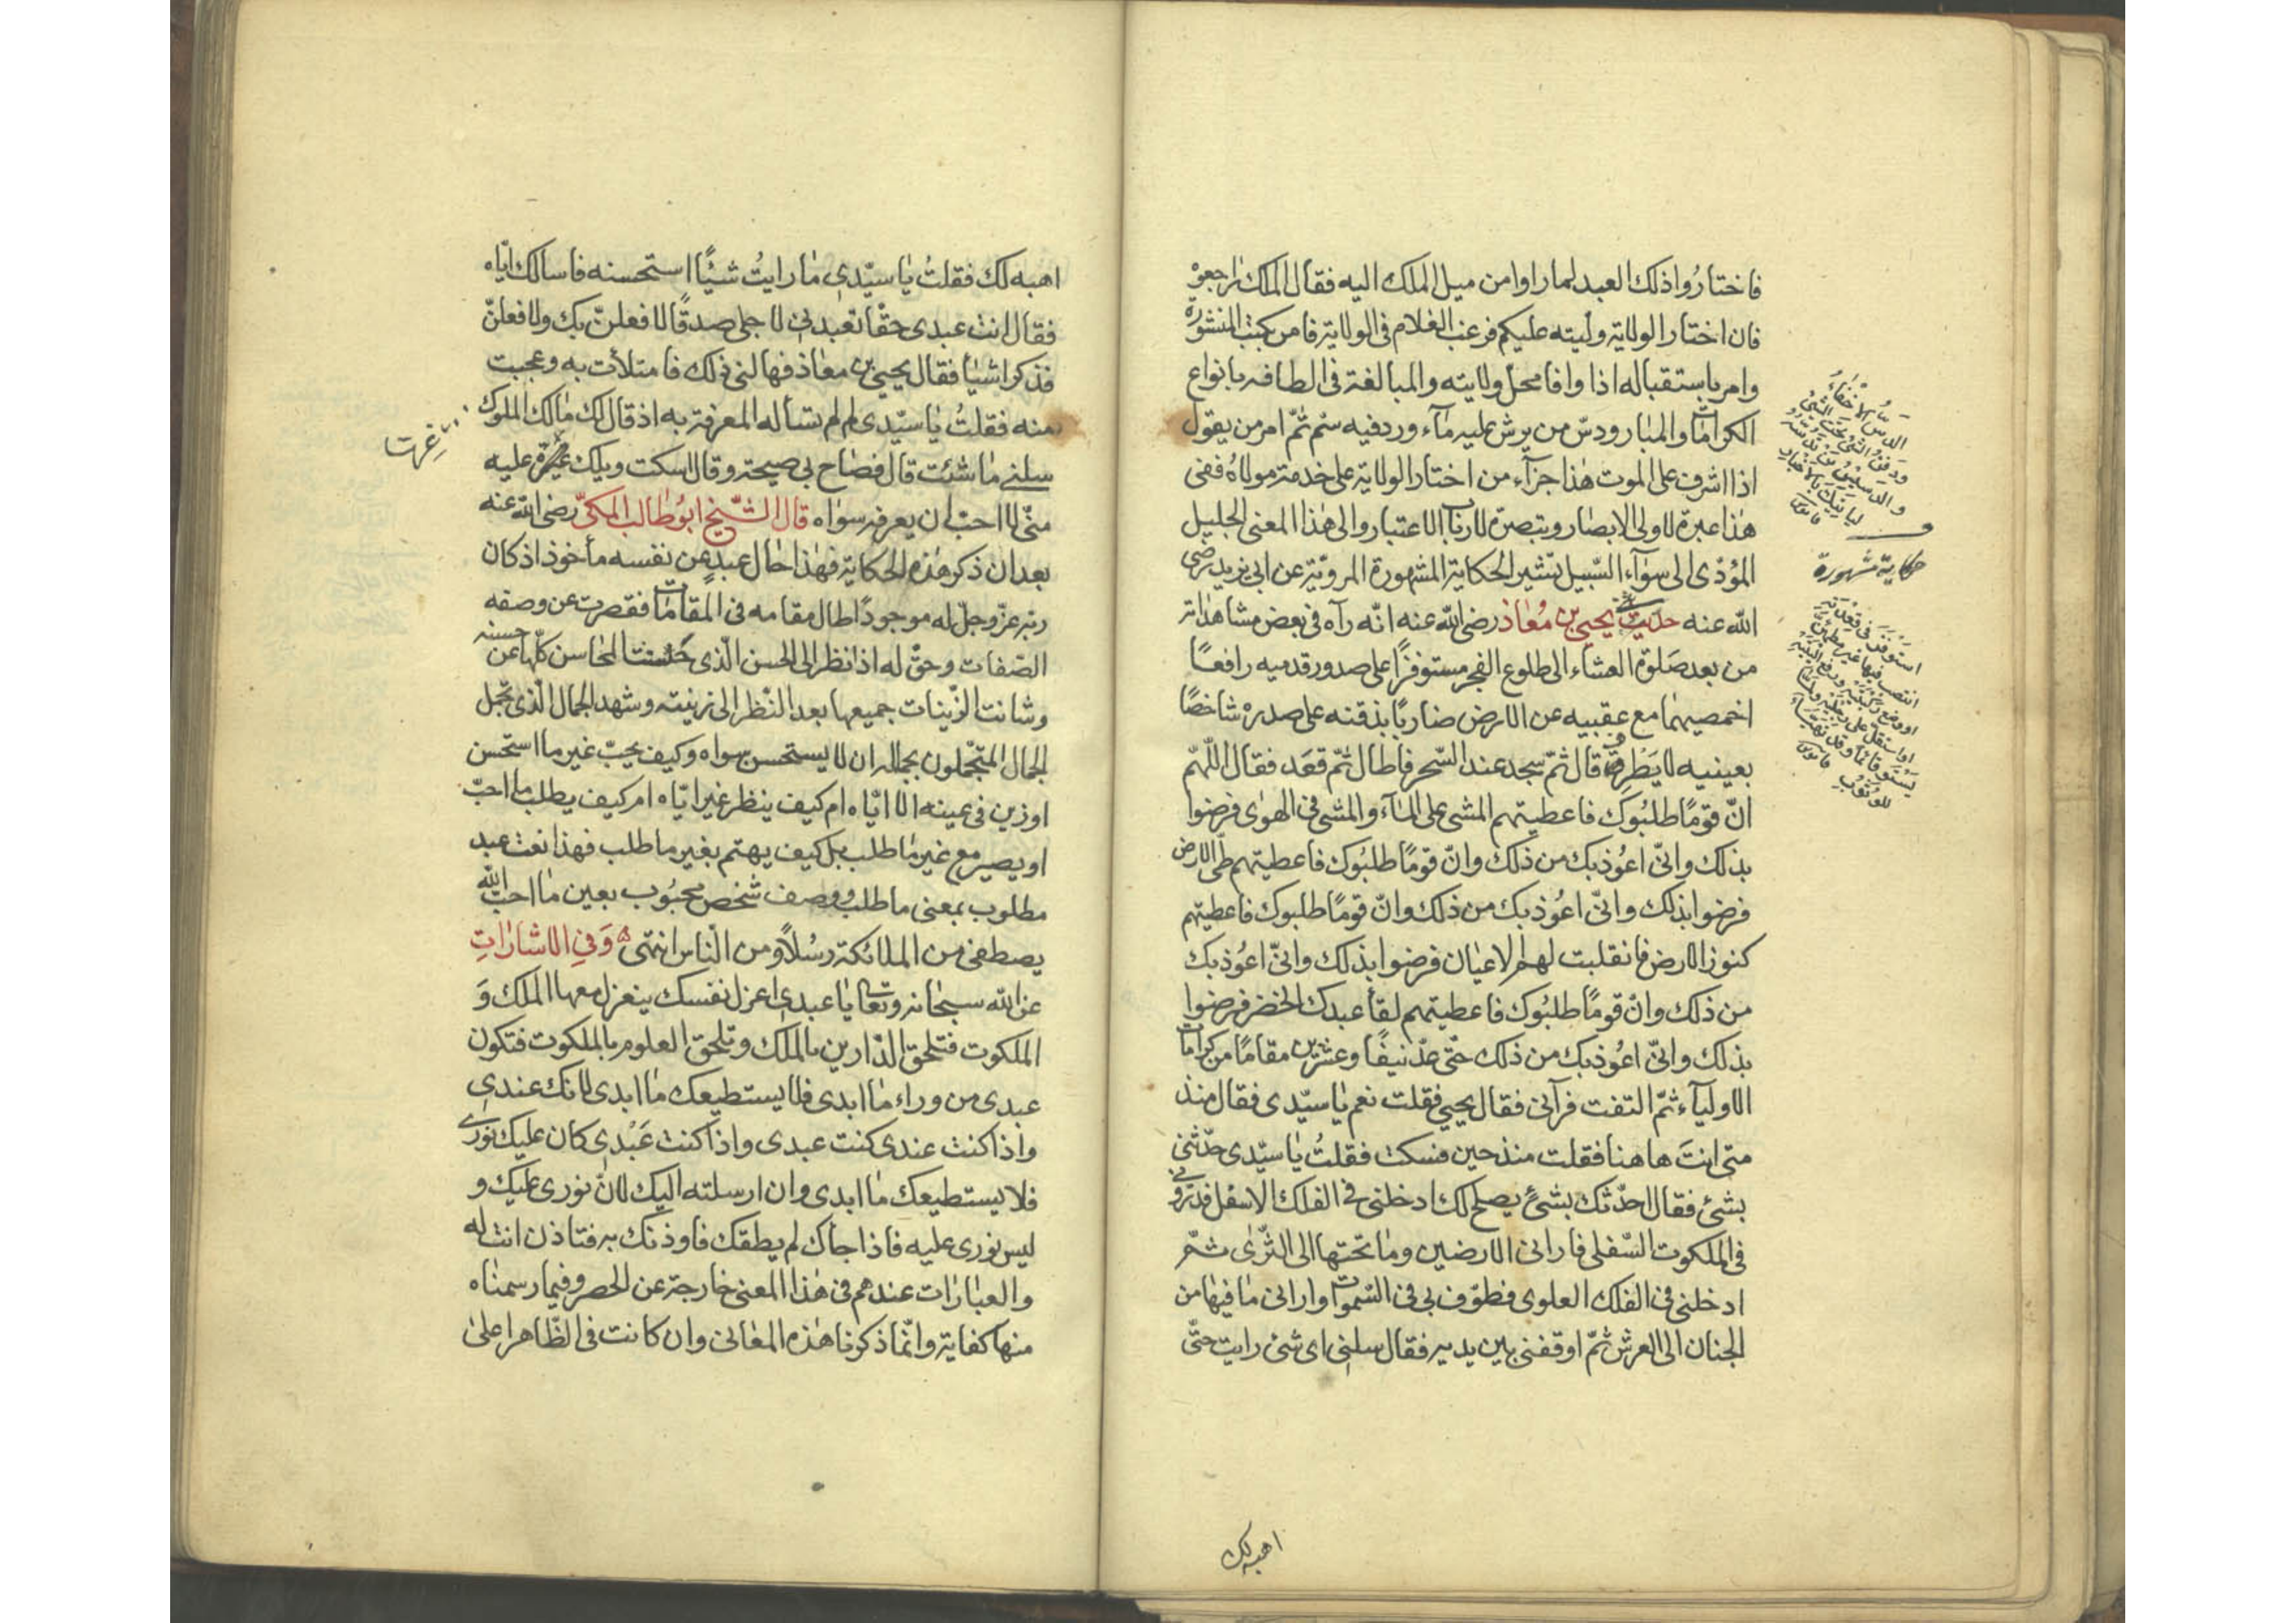 فاختاروا ذلك العبد لما راوا من ميل الملك اليه فقال الملك راجعوه
فان اختار الولاية وليته عليكم فرغب الغلام في الولاية فامر بكتب المنشورة
وامر باستقباله اذا وافا محل ولايته والمبالغة في الطافه بانواع
الكرامات والمبار ودسّ من يرش عليه مآء ورد فيه سمّ ثمّ امر من يقول
اذا اشرف على الموت هٰذا جزآء من اختار الولاية على خدمة مولاهُ ففى
هٰذا عبرة لاولى الابصار وتبصرة لارباب الاعتبار والى هٰذا المعنى الجليل
المؤدّى الى سوآء السّبيل تشير الحكاية المشهورة المرويّة عن ابى يزيد رضى
اللّه عنه حديث يحيى بن مُعاذ رضى اللّه عنه انّه رآه فى بعض مشاهداته
من بعد صَلوة العشاء الى طلوع الفجر مستوفزًا على صدور قدميه رافعًا
اخمصيهما مع عقبيه عن الارض ضاربًا بذقنه على صدره شاخصًا
بعينيه لا يَطْرِف قال ثمّ سجد عند السّحر فاطال ثمّ قعَد فقال اللّهمّ
انّ قومًا طلبُوك فاعطيتهم المشى على المآء والمشى فى الهوٰى فرضوا
بذلك وانّى اعُوذ بك من ذلك وانّ قومًا طلبُوك فاعطيتهم طىّ الارض
فرضوا بذلك وانّى اعُوذ بك من ذلك وانّ قومًا طلبوك فاعطيتهم
كنوز الارض فانقلبت لهم الاعيان فرضوا بذلك وانّى اعُوذ بك
من ذلك وانّ قومًا طلبُوك فاعطيتهم لقأ عبدك الخضر فرضوا
بذلك وانّى اعُوذ بك من ذلك حتّى عدّ نيفًا وعشرين مقامًا من كرامات
الاوليآء ثمّ التفت فرآنى فقال يحيى فقلت نعم يٰا سيّدى فقال منذ
متى انتَ هاهنا فقلت منذ حين فسكت فقلتُ يٰا سيّدى حدّثنى
بشئ فقال احدّثك بشئ يصلح لك ادخلنى فى الفلك الاسفل فدوّرنى
فى الملكوت السّفلى فارانى الارضين ومٰا تحتها الى الثّرى ثمّ
ادخلنى فى الفلك العلوى فطوّف بى فى السّموات وارانى مٰا فيهٰا من
الجنان الى العرش ثمّ اوقفنى بين يديه فقال سلنى اى شئ رايت حتّى
اهبه لك
الدسّ الاخفاءُ
ودفن الشئ تحت الشئ
والدسيس من تدسّه
لياتيك بالاخبار
قاموس
حكاية مشهورة
استوفز فى قعدته
انتصب فيها غير مطمئن
او وضع ركبتيه ورفع اليتيه
او استقلّ على رجليه ولمّا
يستو قائمًا وقد تهيّأ
للوثوب قاموس
اهبه لك فقلتُ يٰا سيّدى مٰا رايتُ شيئًا استحسنه فاسالك ايّاه
فقال انت عبدى حقًا تعبدنى لاجلى صدقًا لافعلنّ بك ولافعلنّ
فذكر اشيأ فقال يحيى بن معٰاذ فهالنى ذلك فامتلأت به وعجبت
منه فقلتُ يٰا سيّدى لم لم تسأله المعرفة به اذ قال لك مٰالك الملوك
سلنى مٰا شئت قال فصٰاح بى صيحة وقال اسكت ويلك غرت عليه
منّى لا احبّ ان يعرفه سوٰاه قال الشّيخ ابُو طٰالب المكىّ رضى اللّه عنه
بعد ان ذكر هٰذه الحكاية فهٰذا حٰال عبدٍ عن نفسه مأخوذ اذ كان
ربّه عزّ وجلّ له موجودًا طال مقامه فى المقامات فقصرت عن وصفه
الصّفات وحقّ له اذا نظر الى الحسن الّذى حسنت المحاسن كلّها عن حسنه
وشانت الزّينات جميعها بعد النّظر الى زينته وشهد الجمال الّذى تجمّل
الجمال المتجمّلون بجماله ان لا يستحسن سواه وكيف يحبّ غير ما استحسن
او زين فى عينه الا ايّاه ام كيف ينظر غير ايّاه ام كيف يطلب ما احبّ
او يصير مع غير مٰا طلب بل كيف يهتم بغير ما طلب فهذا نعت عبد
مطلوب بمعنى ما طلب ووصف شخص محبُوب بعين مٰا احبّ اللّه
يصطفى من الملائكة رسُلاً ومن النّاس انتهى وَفى الاشارات
عن اللّه سبحانه وتعالى يٰا عبدى اعزل نفسك ينعزل معها الملك وَ
الملكوت فتلحق الدّارين بالملك وتلحق العلوم بالملكوت فتكون
عبدى من وراء مٰا ابدى فلا يستطيعك مٰا ابدى لانك عندى
واذا كنت عندى كنت عبدى واذا كنت عَبْدى كان عليك نورى
فلا يستطيعك مٰا ابدى وان ارسلته اليك لانّ نورى عليك و
ليس نورى عليه فاذا جاك لم يطقك فاوذنك به فتاذن انت له
والعبٰارٰات عندهم فى هٰذا المعنى خارجة عن الحصر وفيما رسمنٰاه
منها كفاية وانّما ذكرنا هٰذه المعٰانى وان كانت فى الظّاهر اعلىٰ
غرت